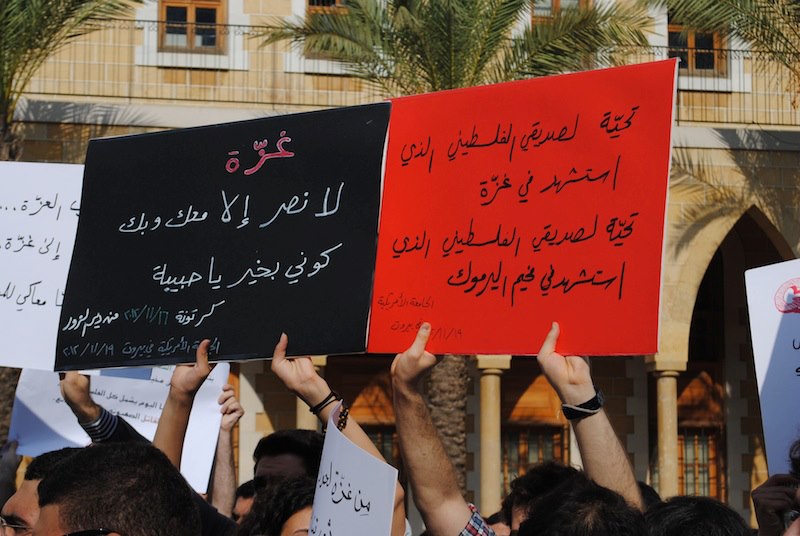 غزّة
لا نصر إلا معك وبك
كوني بخير يا حبيبة
كرتونة ٢٠١٢/١١/١٦ من ديرالزور
الجامعة الأمريكية في بيروت ٢٠١٢/١١/١٩
تحيّة لصديقي الفلسطيني الذي
استشهد في غزّة
تحيّة لصديقي الفلسطيني الذي
استشهد في مخيم اليرموك
الجامعة الأمريكية
بيروت ١١/١٩/
العزّة...
إلى غزّة
معاكي
اليوم
من غزّة